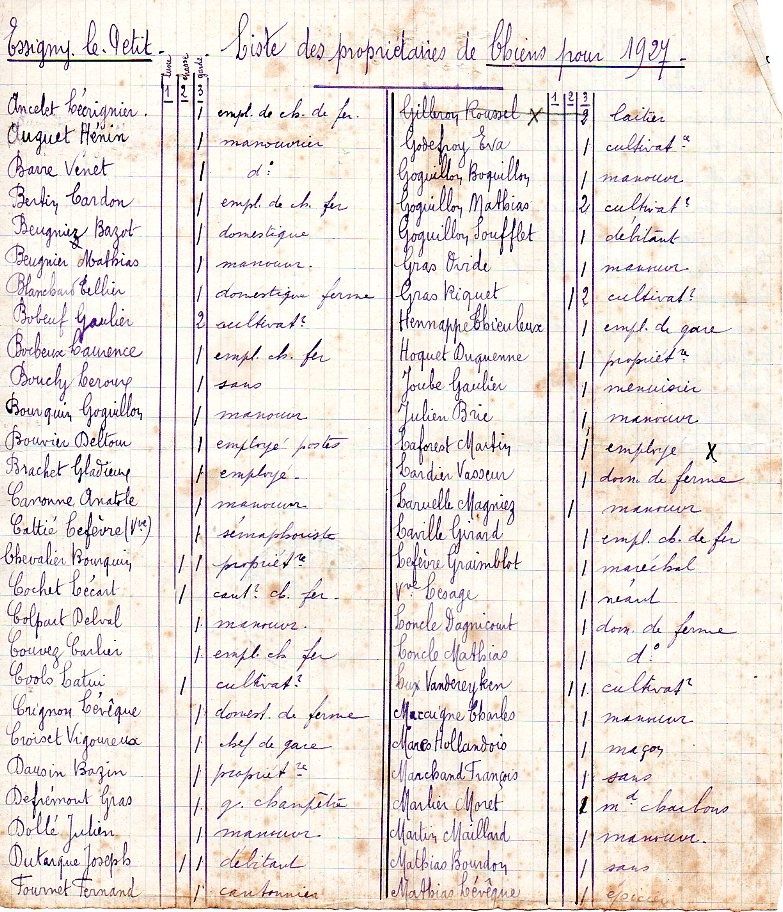 Essigny-le-Petit. - Liste des propriétaires de Chiens pour 1927 -
1 luxe 2 chasse 3 garde
Ancelet Lécrignier. 1 empl. de ch. de fer.
Auguet Hénin 1 manouvrier
Barre Venet 1 d°
Bertin Cardon 1 empl. de ch. fer
Beugniez Bazot 1 domestique
Beugnier Mathias 1 manouvr.
Blanchard Tellier 1 domestique ferme
Bobeuf Gaulier 2 cultivatr
Bocheux Laurence 1 empl. ch. fer
Bouchy Leroux 1 sans
Bourquin Goguillon 1 manouvr
Bouvier Deltour 1 employé postes
Brachet Gladieux 1 employé.
Canonne Anatole 1 manouvr
Cattié Lefèvre (Vve) 1 sémaphoriste
Chevalier Bourquin 1 1 propriétre
Cochet Lécart 1 cantr ch. fer.
Colpart Delval 1 manouvr.
Couvez Carlier 1 empl. ch. fer
Cools Latui 1 cultivatr
Crignon Lévêque 1 domest. de ferme
Croiset Vigoureux 1 chef de gare
Dausin Bazin 1 propriétre
Defrémont Gras 1 g. champêtre
Dollé Julien 1 manouvr
Dutarque Joseph 1 1 débitant
Fournet Fernand 1 cantonnier
1 2 3
Gilleron Roussel X 2 laitier
Godefroy Eva 1 cultivatre
Goguillon Boquillon 1 manouvr
Goguillon Mathias 2 cultivatr
Goguillon Soufflet 1 débitant
Gras Ovide 1 manouvr
Gras Riquet 1 2 cultivatr
Hennappe Thieuleux 1 empl. de gare
Hoquet Duquenne 1 propriétre
Joube Gaulier 1 menuisier
Julien Brie 1 manouvr
Laforest Martin 1 employé X
Lardier Vasseur 1 dom. de ferme
Laruelle Magniez 1 manouvr
Laville Girard 1 empl. ch. de fer
Lefèvre Graimblot 1 maréchal
Vve Lesage 1 néant
Loncle Dagnicourt 1 dom. de ferme
Loncle Mathias 1 d°
Lux Vandereyken 1 1 cultivatr
Macaigne Charles 1 manouvr
Marcs Hollandois 1 maçon
Marchand François 1 sans
Marlier Moret 1 md charbons
Martin Maillard 1 manouvr.
Mathias Bourdon 1 sans
Mathias Lévêque 1 épicier